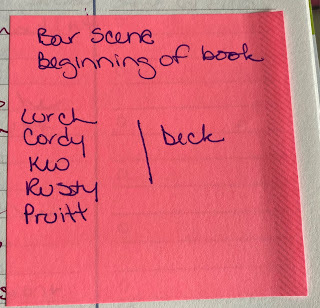 Bar Scene
Beginning of book
Lurch
Cordy | beck
KW
Rusty
Pruitt